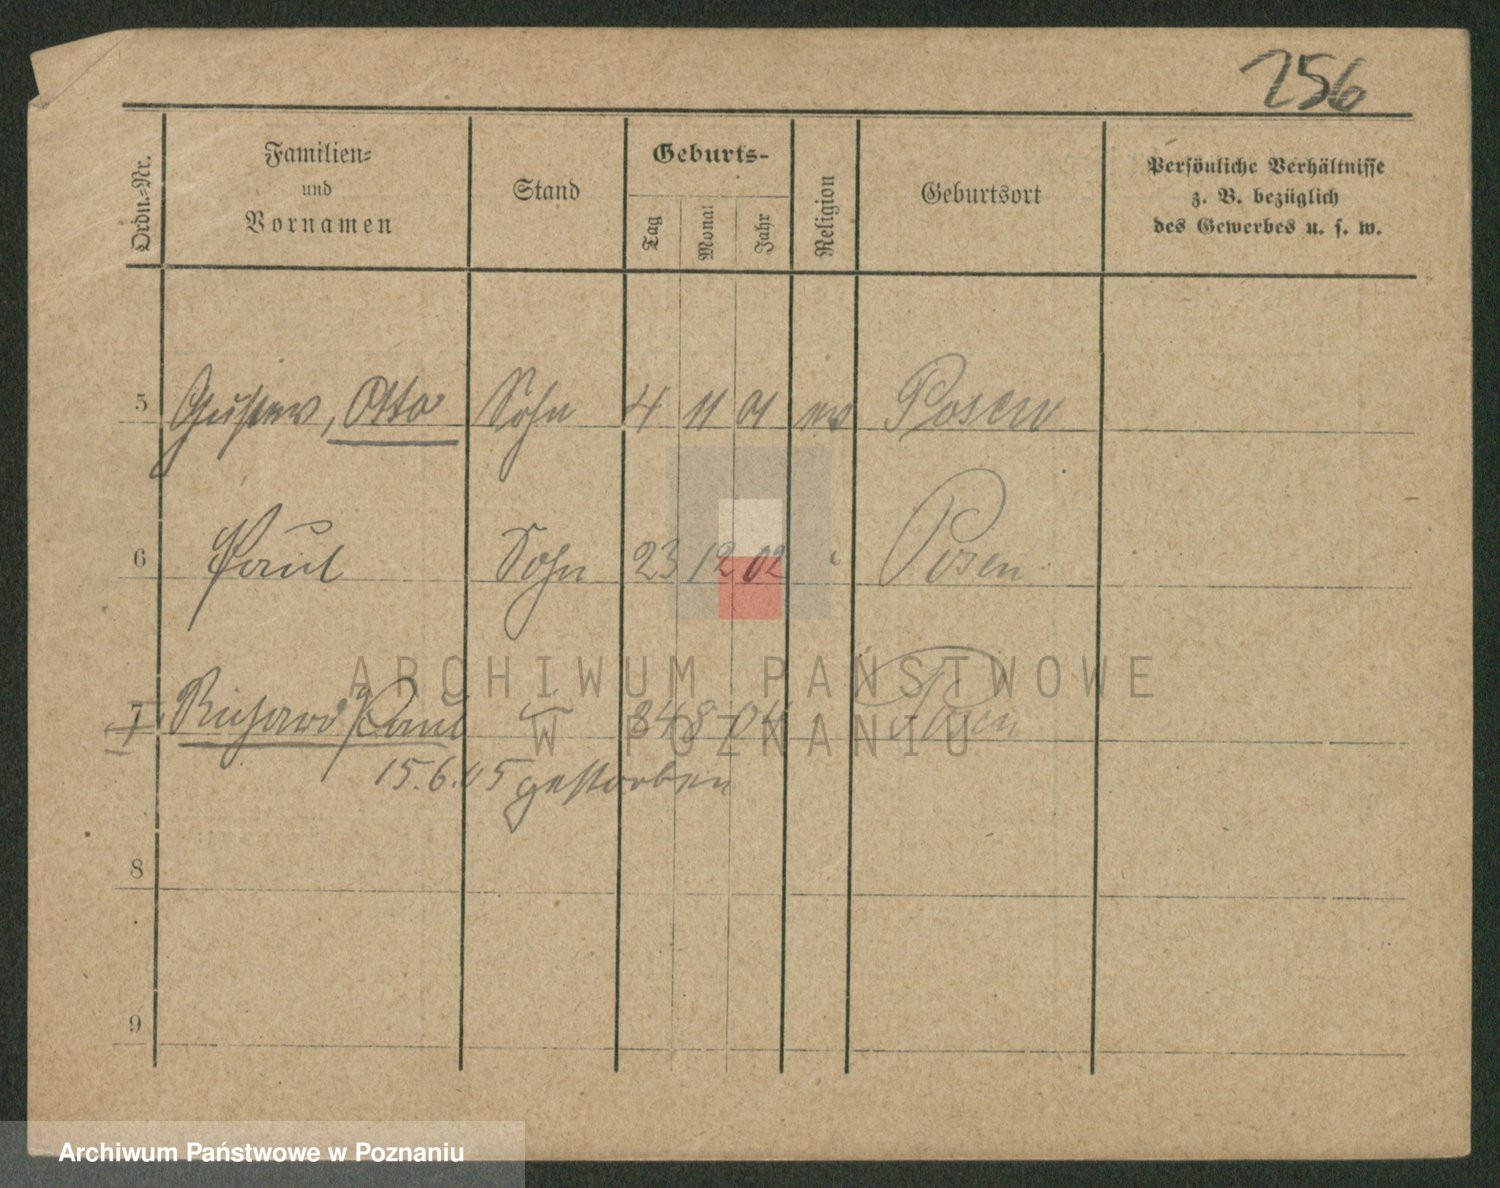 256
Ordn.-Nr. Familien- und Vornamen Stand Geburts- Tag Monat Jahr Religion Geburtsort Persönliche Verhältnisse z. B. bezüglich des Gewerbes u. s. w.
5 Gustav, Otto Sohn 4 11 01 ev Posen
6 Paul Sohn 23 12 02 " Posen
7 Richard Paul 8 04 Posen
15.6.05 gestorben
8
9
ARCHIWUM PAŃSTWOWE
W POZNANIU
Archiwum Państwowe w Poznaniu